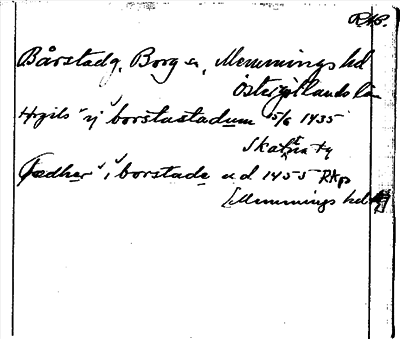 RAP.
Bårstad g. Borg sn, Memmings hd
Östergötlands län
Hrgils "ij borstastadum 15/6 1435
Skatna
Gædher "i borstade u d 1455 RAp
[Memmings hd]